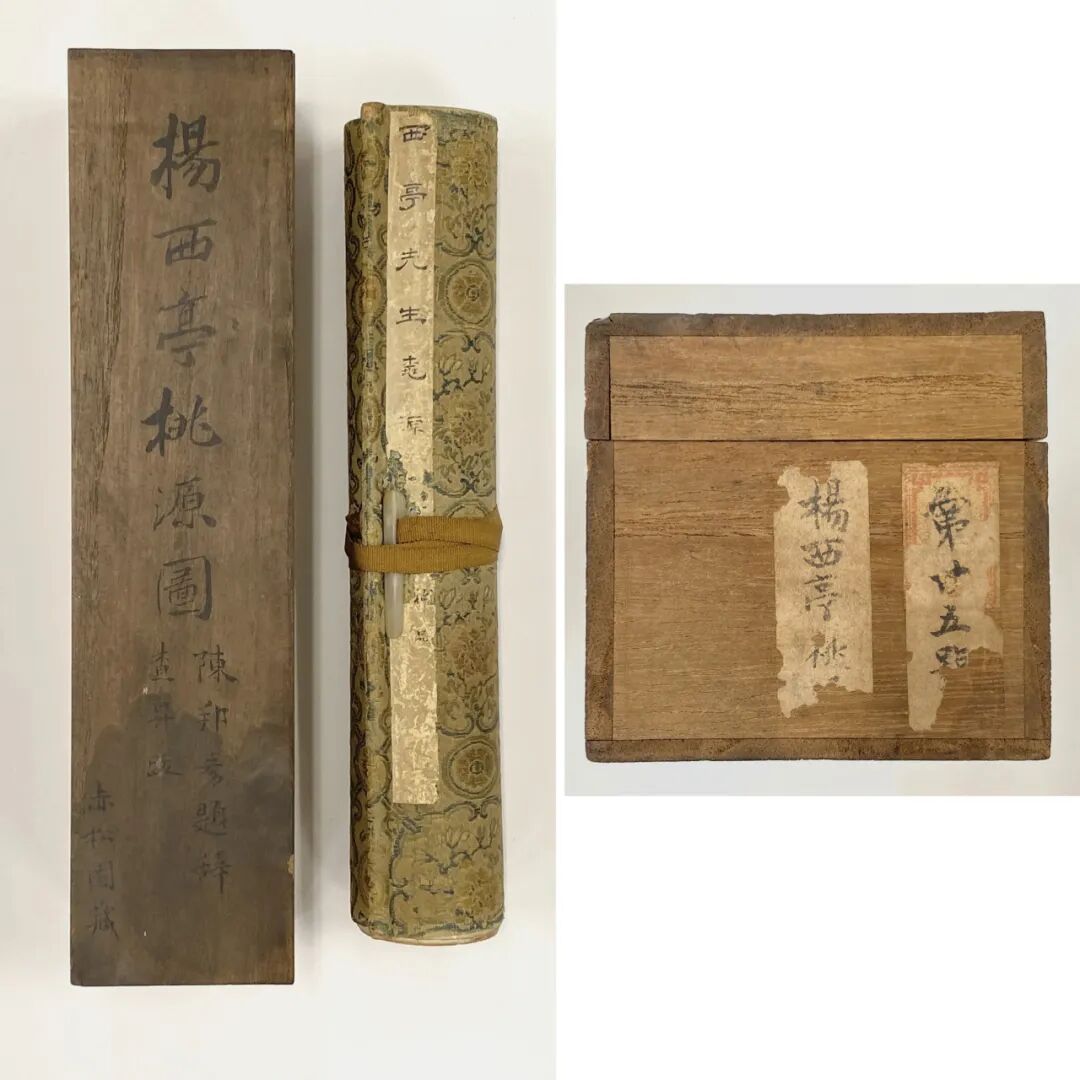 楊西亭桃源圖
陳邦彥題辭
查昇跋
赤松園藏
西亭先生桃源
楊西亭桃
第廿五號